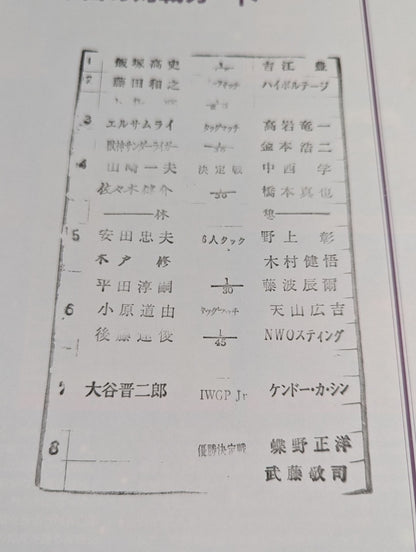 1 飯塚高史 吉江 豊
2 藤田和之 ハイボルテージ
3 エルサムライ タッグマッチ 高岩竜一
獣神サンダーライガー 金本浩二
4 山崎一夫 決定戦 中西 学
佐々木健介 1/30 橋本真也
休 憩
5 安田忠夫 6人タッグ 野上 彰
木戸 修 木村健悟
平田淳嗣 1/30 藤波辰爾
6 小原道由 タッグマッチ 天山広吉
後藤達俊 1/45 NWOスティング
7 大谷晋二郎 IWGP Jr ケンドー・カ・シン
8 優勝決定戦 蝶野正洋
武藤敬司